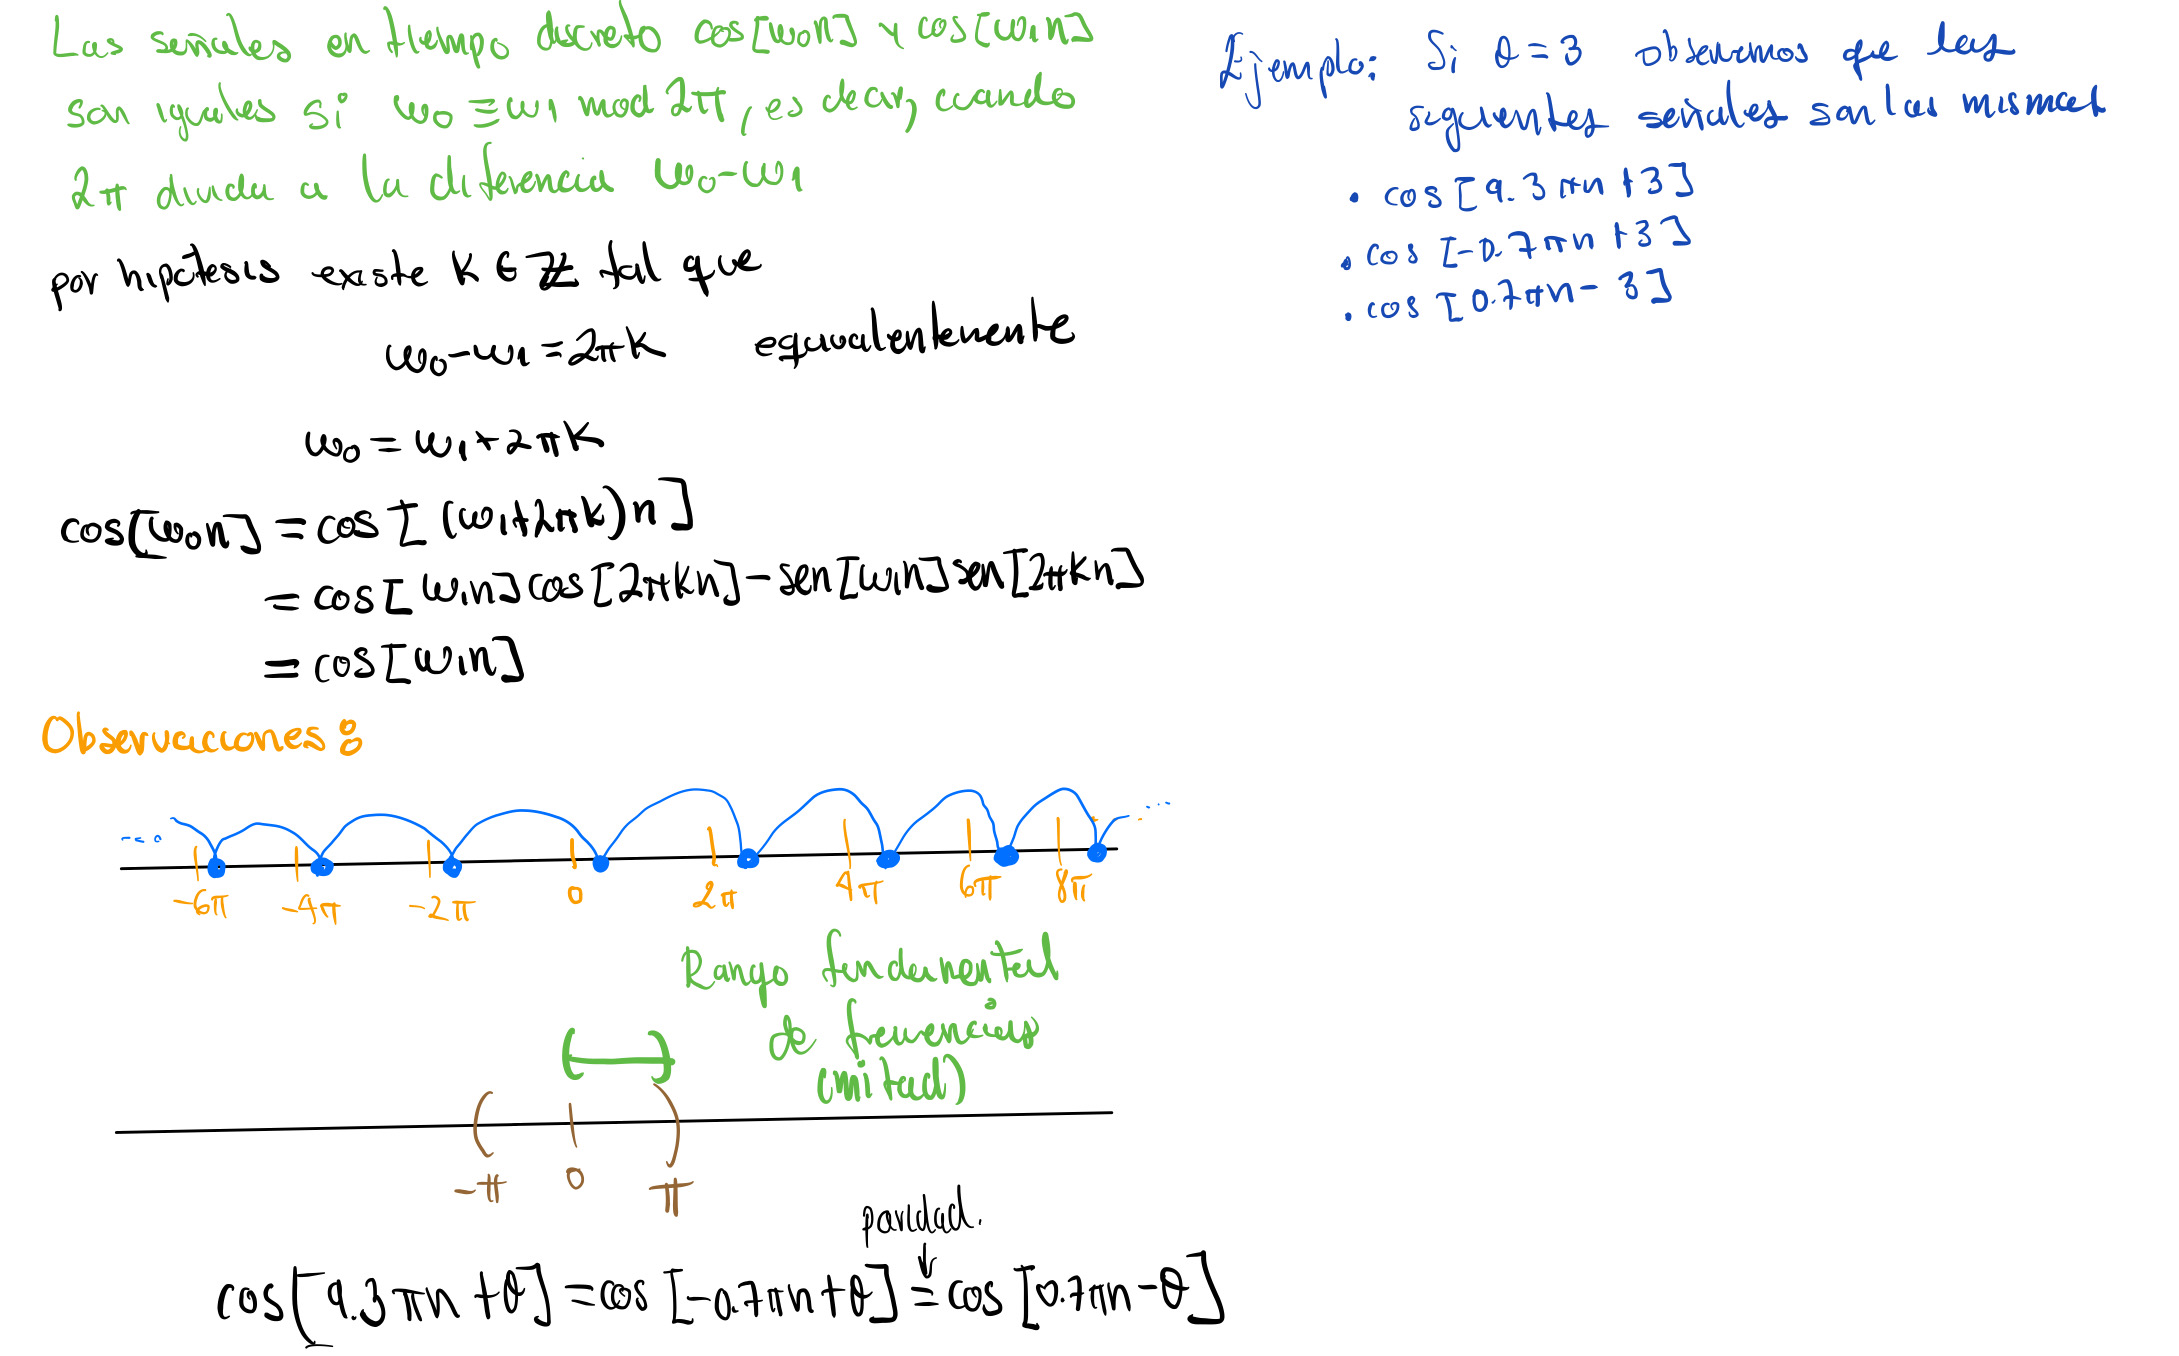 Las señales en tiempo discreto cos[ω₀n] y cos[ω₁n]
son iguales si ω₀ ≡ ω₁ mod 2π, es decir, cuando
2π divida a la diferencia ω₀-ω₁
por hipótesis existe K ∈ ℤ tal que
ω₀-ω₁ = 2πK equivalentemente
ω₀ = ω₁+2πK
cos[ω₀n] = cos[(ω₁+2πk)n]
= cos[ω₁n]cos[2πKn]-sen[ω₁n]sen[2πKn]
= cos[ω₁n]
Observaciones:
-6π -4π -2π 0 2π 4π 6π 8π
Rango fundamental
de frecuencias
(mitad)
-π 0 π
paridad.
cos[9.3πn+θ] = cos[-0.7πn+θ] = cos[0.7πn-θ]
Ejemplo: Si θ=3 observemos que las
siguientes señales son las mismas
• cos[9.3πn+3]
• cos[-0.7πn+3]
• cos[0.7πn-3]